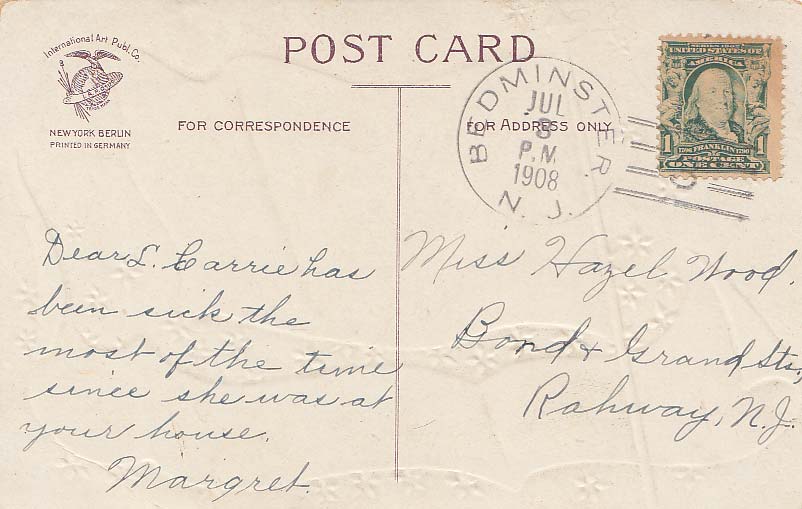 International Art Publ. Co.
NEW YORK BERLIN
PRINTED IN GERMANY
POST CARD
FOR CORRESPONDENCE
FOR ADDRESS ONLY
BEDMINSTER.
JUL
8
P.M.
1908
N. J.
SERIES 1902
UNITED STATES OF
AMERICA
1 1
1706 FRANKLIN 1790
POSTAGE
ONE CENT
Dear L. Carrie has
been sick the
most of the time
since she was at
your house.
Margret.
Miss Hazel Wood.
Bond & Grand Sts.,
Rahway, N.J.